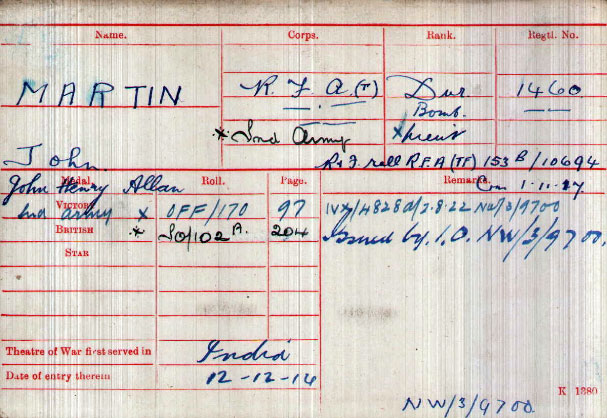 Name. Corps. Rank. Regtl. No.
MARTIN R. F. A. (T) Dvr 1460
Bomb.
* Ind Army x Lieut
John R & F roll R.F.A (TF) 153 B/10694
Com 1-11-17
John Henry Allan
Medal. Roll. Page. Remarks.
Victory Ind Army x OFF/170 97 NW/3/9700
British * SO/102 A. 204 Issued by I.O. NW/3/9700.
Star
Theatre of War first served in India
Date of entry therein 12-12-14
K 1380
NW/3/9700